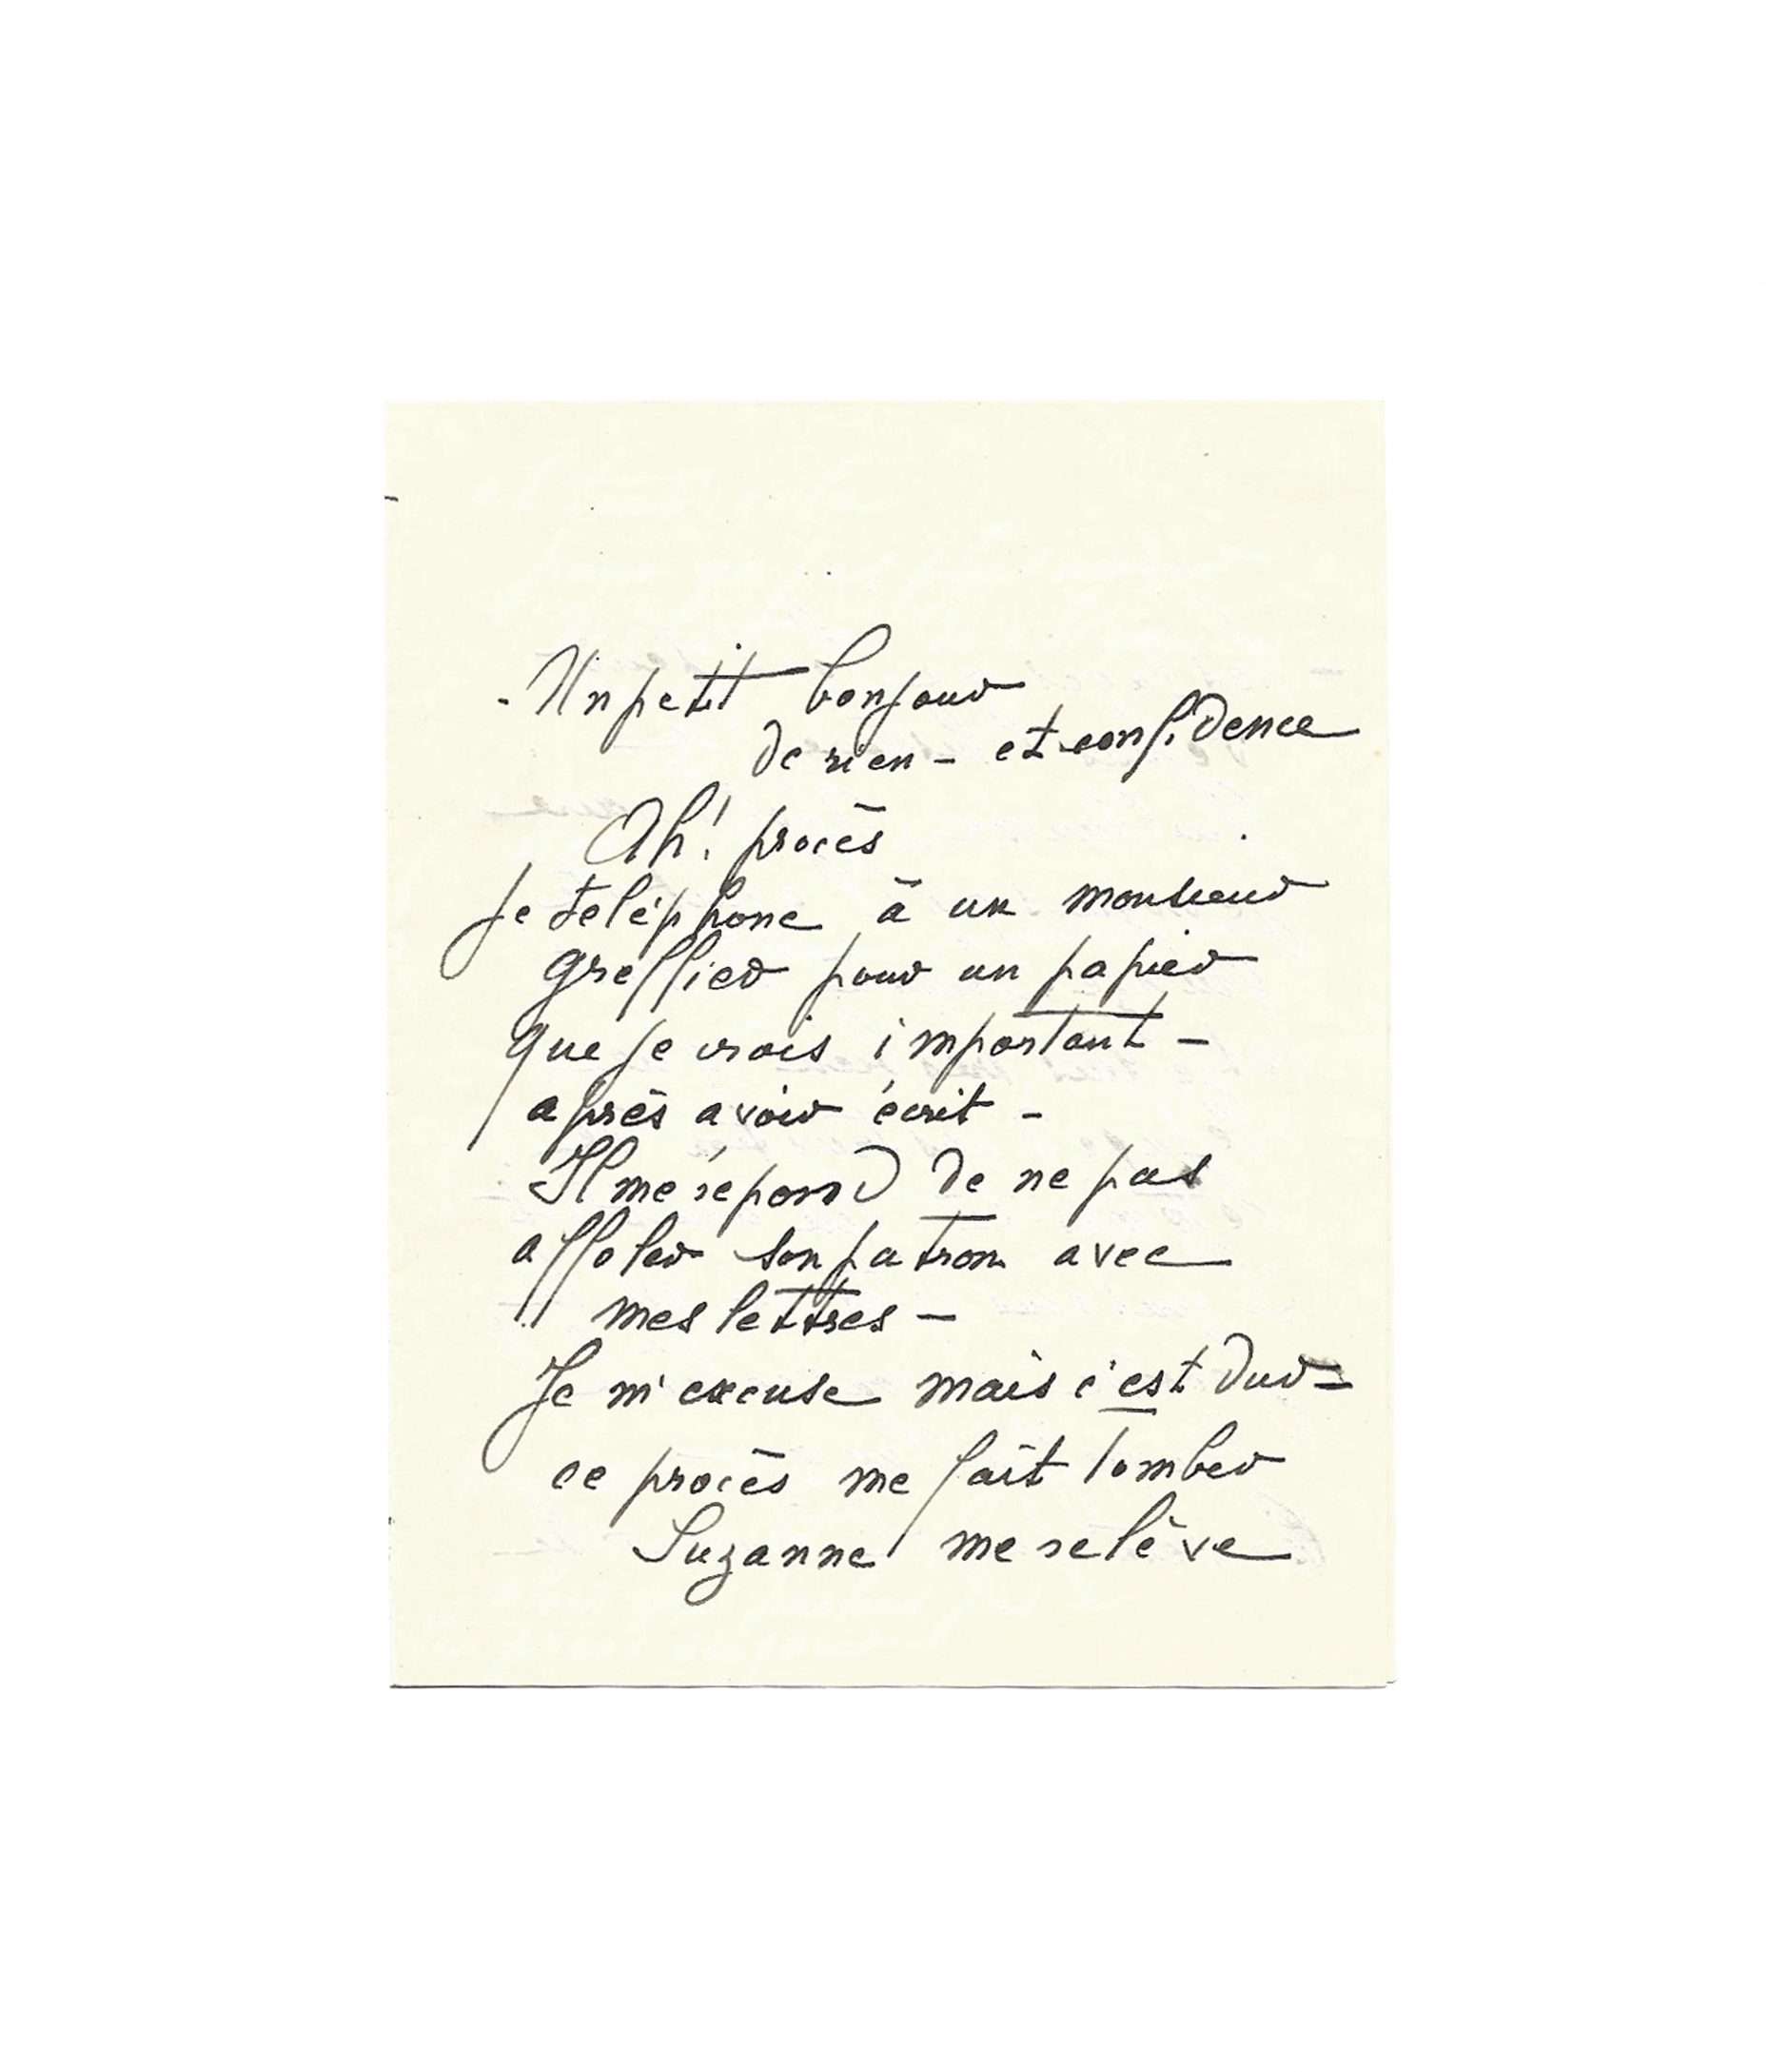 - Un petit bonjour
de rien - et confidence
Ah! procès
Je teléphone à un monsieur
greffier pour un papier
que je crois important -
après avoir écrit -
Il me répond de ne pas
affoler son patron avec
mes lettres -
Je m'excuse mais c'est dur -
ce procès me fait tomber
Suzanne me relève